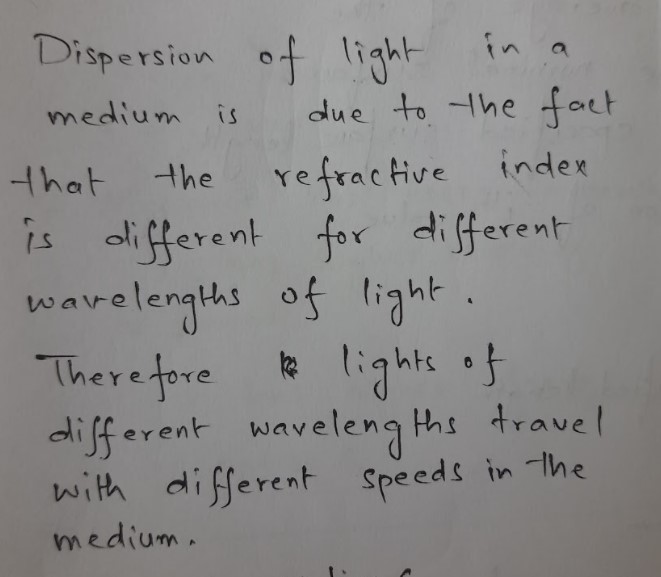 Dispersion of light in a
medium is due to the fact
that the refractive index
is different for different
wavelengths of light.
Therefore lights of
different wavelengths travel
with different speeds in the
medium.